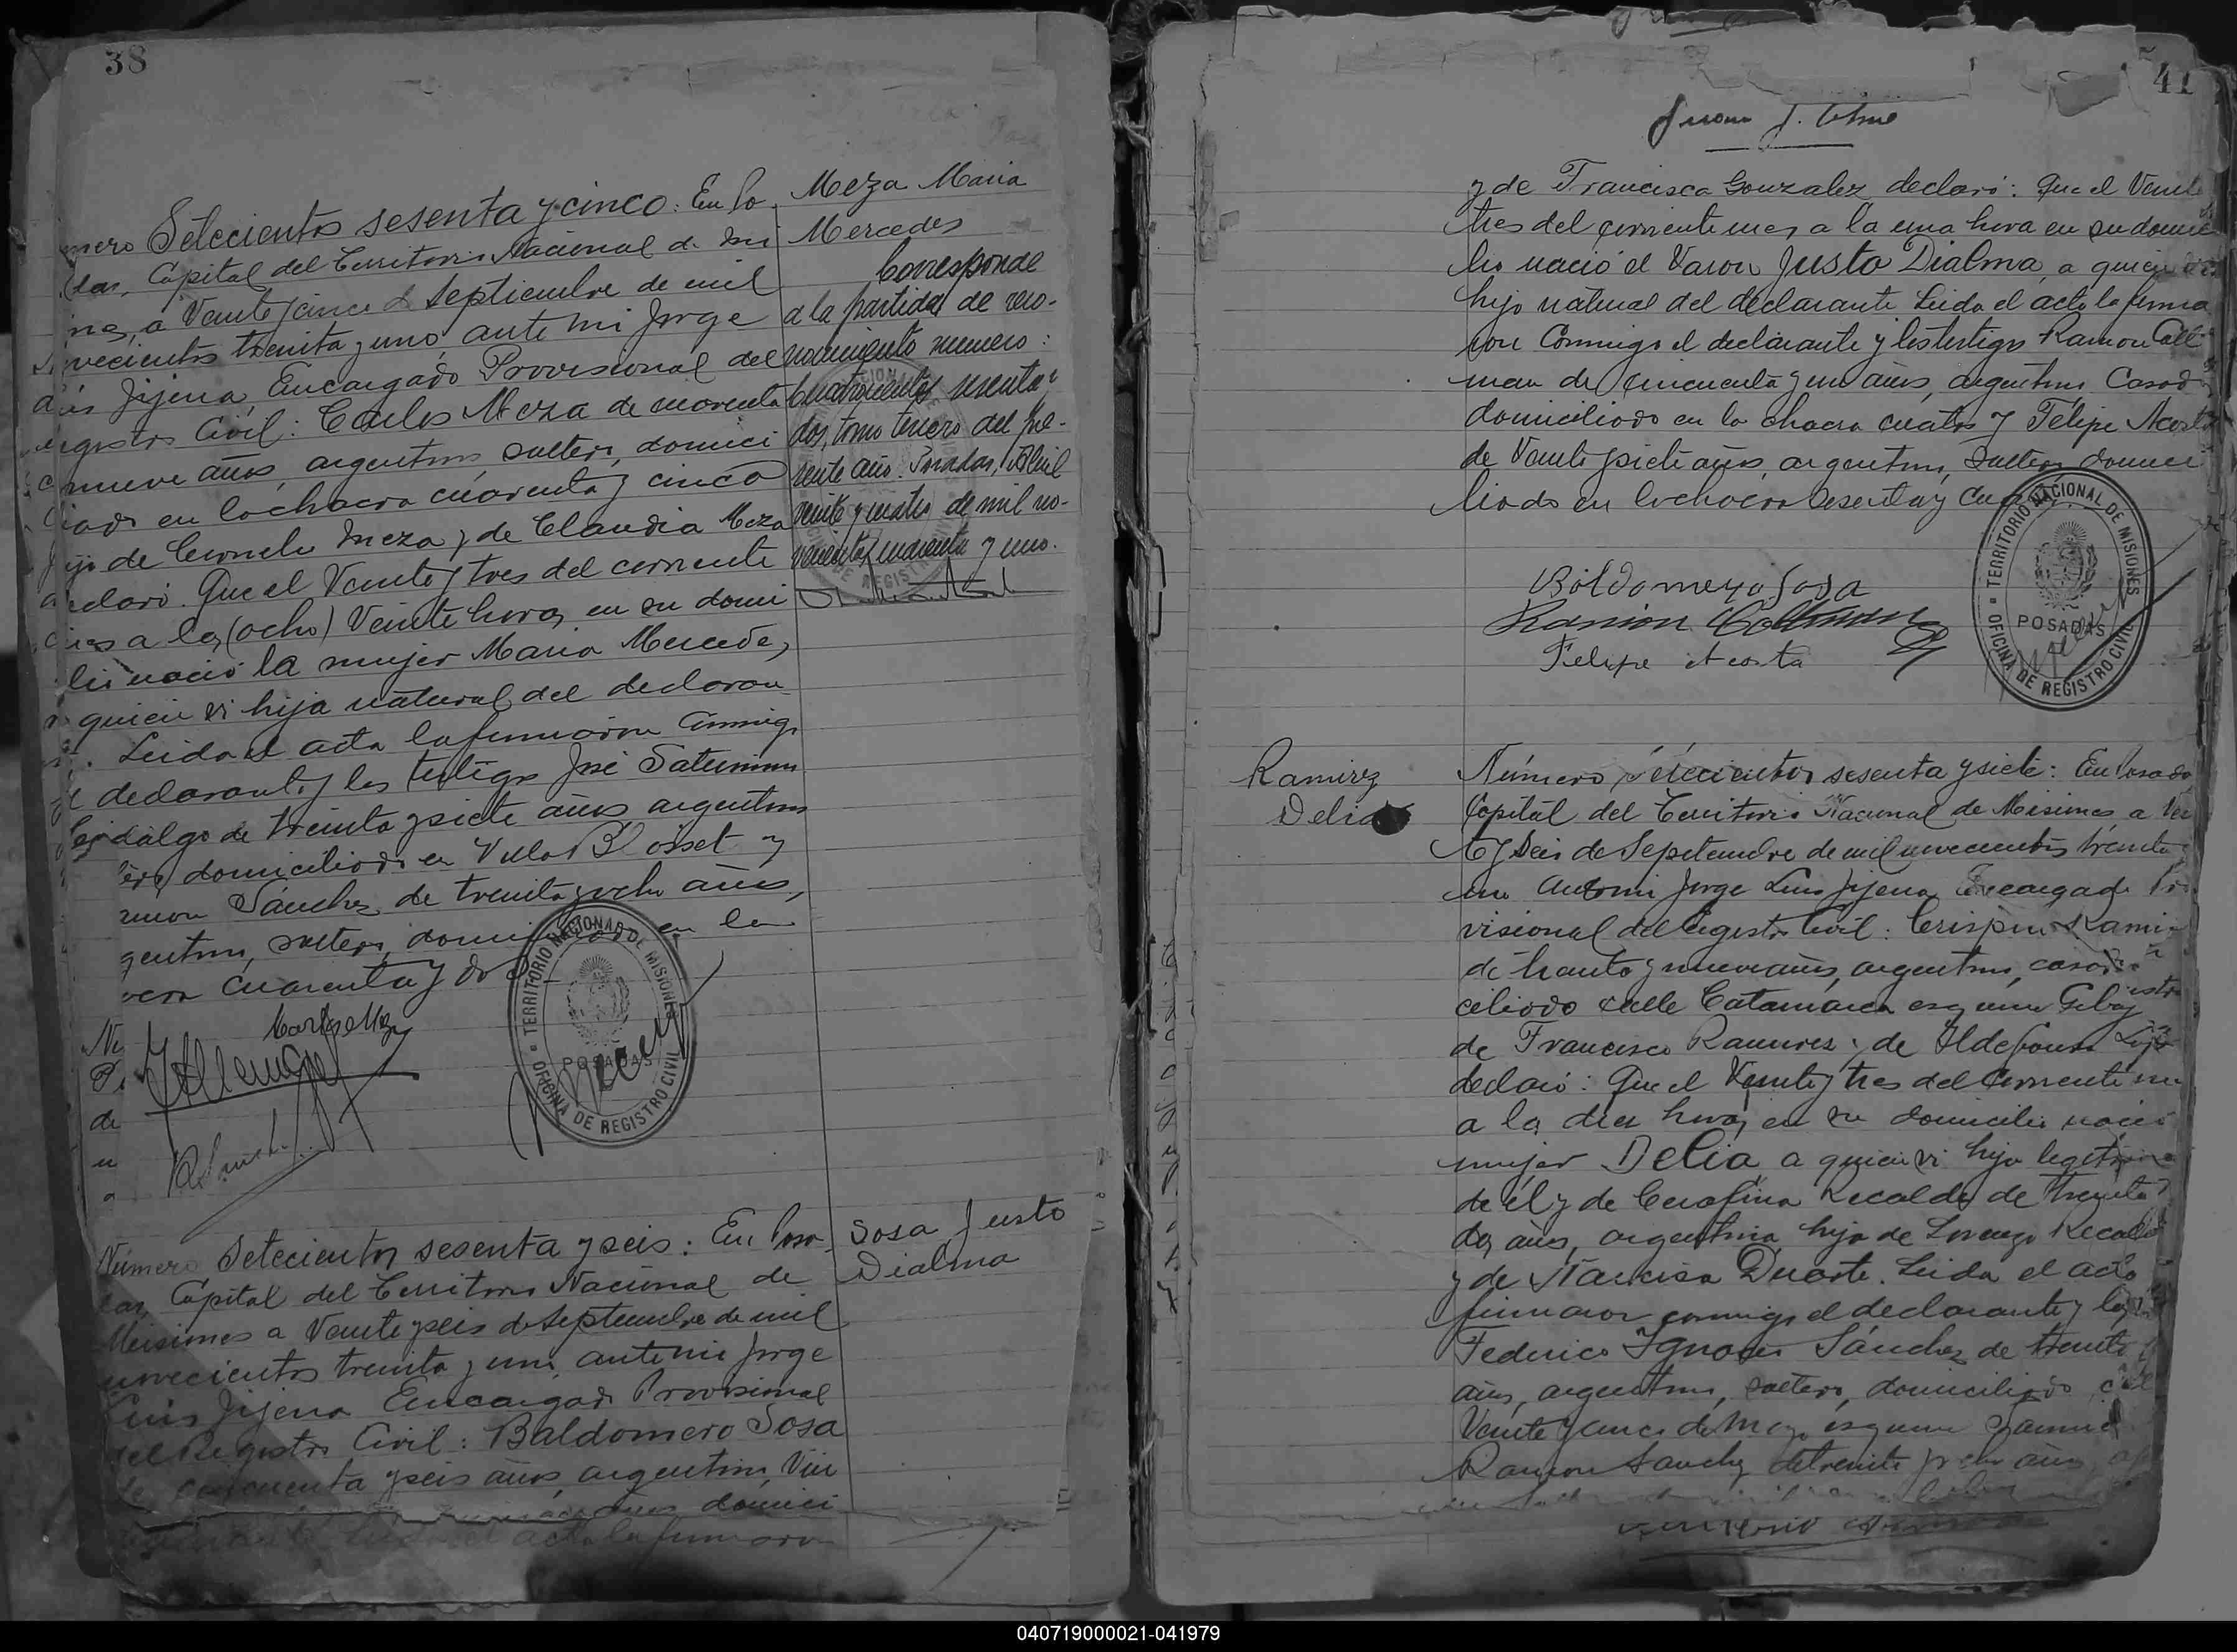 38
Meza Maria
Mercedes
Corresponde
a la partida de reco-
nocimiento numero:
Cuatrocientos sesenta y
dos, tomo tercero del pre-
sente año. Posadas, Abril
veinte y cuatro de mil no-
vecientos cuarenta y uno.
mero Setecientos sesenta y cinco: En Po
das, Capital del Territorio Nacional de Mi
nes, a Veinte y cinco de Septiembre de mil
novecientos treinta y uno ante mi Jorge
Luis Jijena, Encargado Provisional del
Registro Civil: Carlos Meza de
nueve años, argentino, soltero, domici
liado en la chacra cuarenta y cinco
hijo de Cornelio Meza y de Claudia Meza
declaró. Que el Veinte y tres del corriente
mes a las (ocho) Veinte horas en su domi
lio nació la mujer Maria Mercedes,
quien vi hija natural del declaran
Leida el acta la firmaron conmigo
el declarante y los testigos José Saturnino
Hidalgo de treinta y siete años, argentino
domiciliado en Villa Blosset y
mon Sánchez de treinta y ocho años,
gentino, soltero, en la
cuarenta y dos
Carlos Meza
TERRITORIO NACIONAL DE MISIONES
POSADAS
OFICINA DE REGISTRO CIVIL
Sosa Justo
Dialma
Número Setecientos sesenta y seis: En Posa
das, Capital del Territorio Nacional de
Misiones a Veinte y seis de Septiembre de mil
novecientos treinta y uno, ante mi Jorge
Luis Jijena Encargado Provisional
del Registro Civil: Baldomero Sosa
de cincuenta y seis años, argentino, Viu
domici
acta la firmaron
41
Juan J.
y de Francisca Gonzalez, declaró: Que el Veinte
tres del corriente mes a la una hora en su domici
lio nació el Varon Justo Dialma, a quien vi
hijo natural del declarante Leida el acta la firma
ron Conmigo el declarante y los testigos Ramon Coll
man de cincuenta y un años, argentino, Casado
domiciliado en la chacra cuatro y Felipe Acosta
de Veinte y siete años, argentino, soltero domici
liado en la chacra sesenta y
Boldomero Sosa
Ramon Collman
Felipe Acosta
TERRITORIO NACIONAL DE MISIONES
POSADAS
OFICINA DE REGISTRO CIVIL
Ramirez
Delia
Número Setecientos sesenta y siete: En Posadas
Capital del Territorio Nacional de Misiones, a Vein
te y seis de Septiembre de mil novecientos treinta y
uno Ante mi Jorge Luis Jijena Encargado Pro
visional del Registro Civil: Crispin Rami
de treinta y nueve años, argentino, casado
ciliado calle Catamarca esquina
de Francisco Ramirez y de Ildefonsa
declaró: Que el Veinte y tres del Corriente mes
a las diez horas, en su domicilio nació
mujer Delia a quien vi hija legitima
de él y de Cerafina Recalde de treinta y
dos años, argentina, hija de Lorenzo Recalde
y de Narcisa Duarte. Leida el acta
firmaron conmigo el declarante y los
Federico Ignacio Sánchez de treinta
años, argentino, soltero, domiciliado
Veinte y cinco de Mayo esquina
Ramon Sanchez de treinta y ocho años,
040719000021-041979